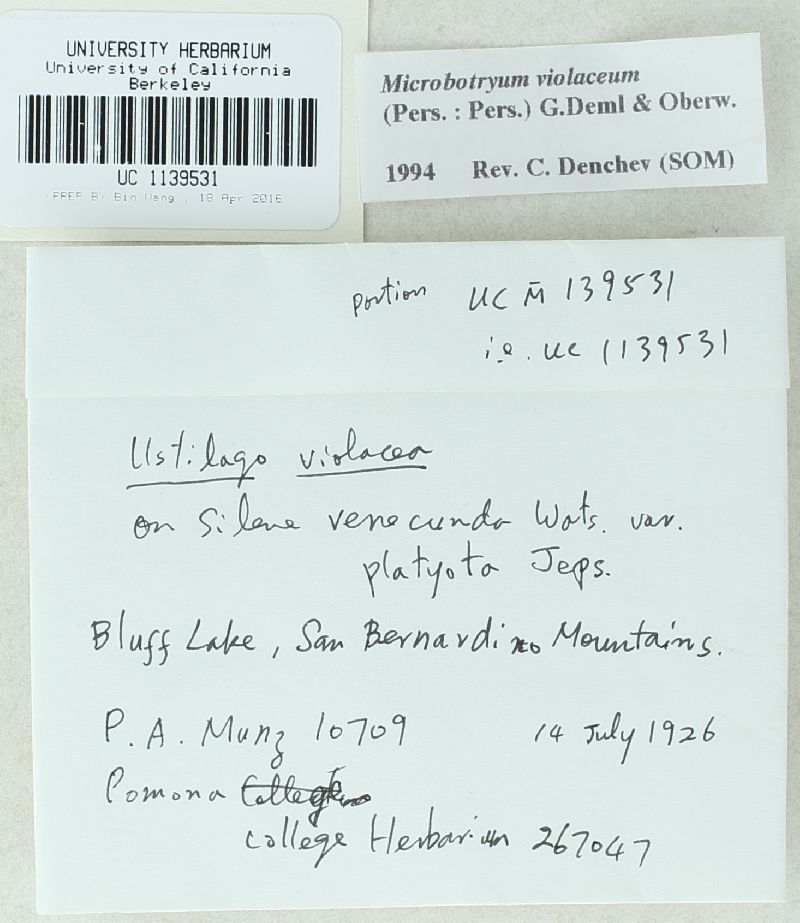 UNIVERSITY HERBARIUM
University of California
Berkeley
UC 1139531
PREP BY Bin Wang , 18 Apr 2016
Microbotryum violaceum
(Pers. : Pers.) G.Deml & Oberw.
1994 Rev. C. Denchev (SOM)
portion UC M̄ 139531
i.e. UC 1139531
Ustilago violacea
on Silene verecunda Wats. var.
platyota Jeps.
Bluff Lake, San Bernardino Mountains.
P. A. Munz 10709 14 July 1926
Pomona
College Herbarium 267047